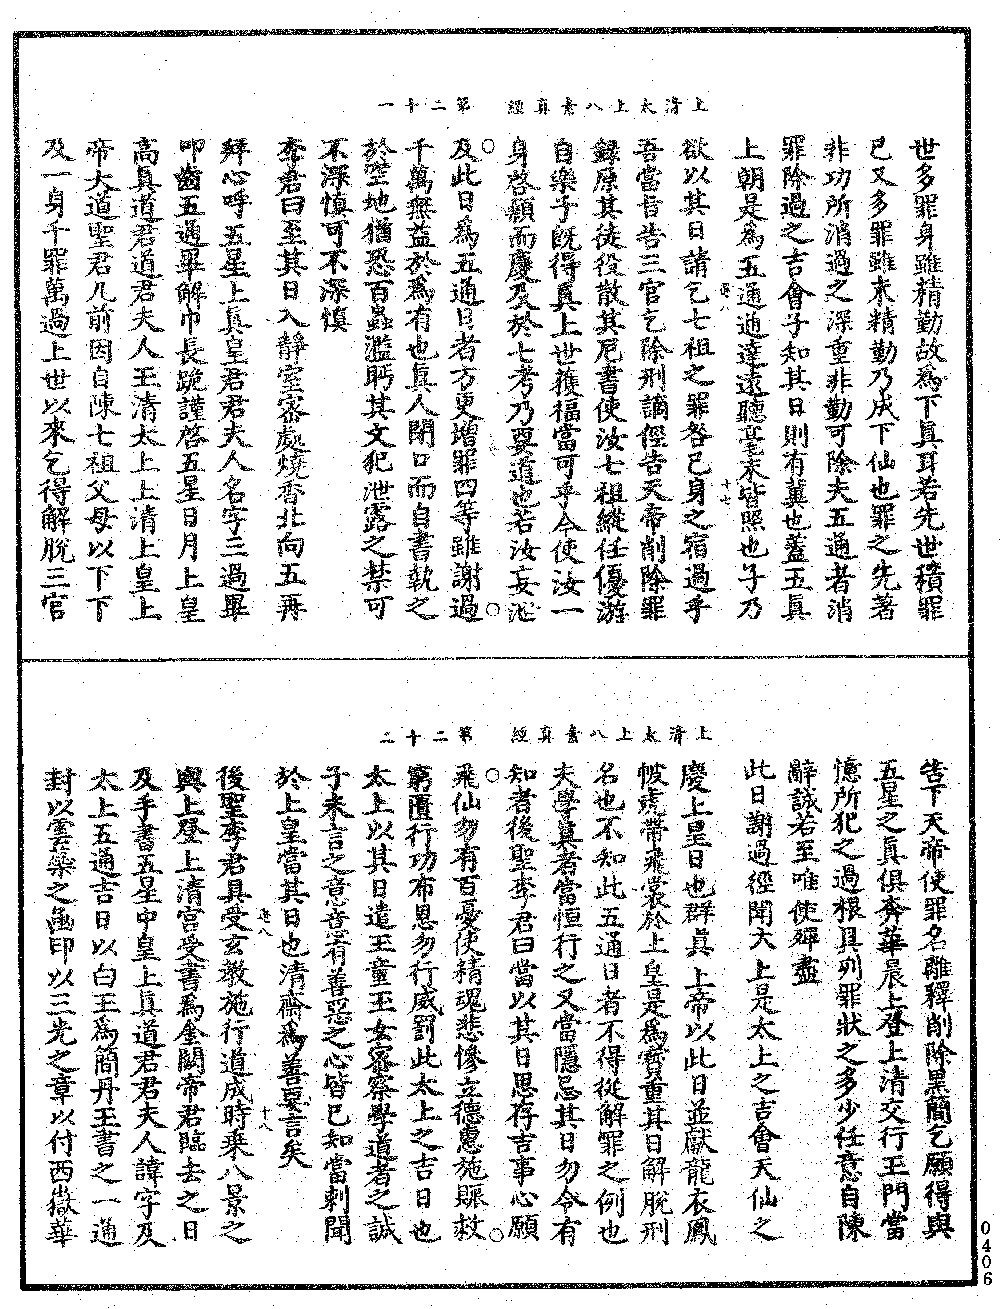 上清太上八素真經　第二十一
世多罪身雖精勤故為下真耳若先世積罪
已又多罪雖末精勤乃成下仙也罪之先著
非功所消過之深重非勤可除夫五通者消
罪除過之吉會子知其日則有冀也蓋五真
上朝是為五通通達遠聽毫末皆照也子乃
欲以其日請乞七祖之罪咎已身之宿過乎
吾當告三官乞除刑謫徑告天帝削除罪
錄原其徒役散其尼書使汝七祖縱任優游
自樂子既得真上世獲福當可乎令使汝一
身啓願而慶及於七考乃要道也若汝妄泄
及此日為五通日者方更增罪四等雖謝過
千萬無益於為有也真人閉口而自書執之
於空地猶恐百蟲濫眄其文犯泄露之禁可
不深慎可不深慎
李君曰至其日入靜室密處燒香北向五再
拜心呼五星上真皇君君夫人名字三過畢
叩齒五通畢解巾長跪謹啓五星日月上皇
高真道君道君夫人玉清太上上清上皇上
帝大道聖君几前因自陳七祖父母以下下
及一身千罪萬過上世以來乞得解脫三官
上清太上八素真經　第二十二
告下天帝使罪名離釋削除黑簡乞願得與
五星之真俱奔華晨上登上清交行玉門當
憶所犯之過根具列罪狀之多少任意自陳
辭誠若至唯使殫盡
此日謝過徑聞太上是太上之吉會天仙之
慶上皇日也群真上帝以此日並獻龍衣鳳
帔虎帶飛裳於上皇是為寶重其日解脫刑
名也不知此五通日者不得從解罪之例也
夫學真者當恒行之又當隱忌其日勿令有
知者後聖李君曰當以其日思存吉事心願
飛仙勿有百憂使精魂悲慘立德惠施賑救
窮匱行功布恩勿行威罰此太上之吉日也
太上以其日遣玉童玉女密察學道者之誠
子未言之意意有善惡之心皆已知當剌聞
於上皇當其日也清齋為善要言矣
後聖李君具受玄教施行道成時乘八景之
輿上登上清宮受書為金闕帝君臨去之日
及手書五星中皇上真道君君夫人諱字及
太上五通吉日以白玉為簡丹玉書之一通
封以雲蘂之凾印以三光之章以付西嶽華
0406